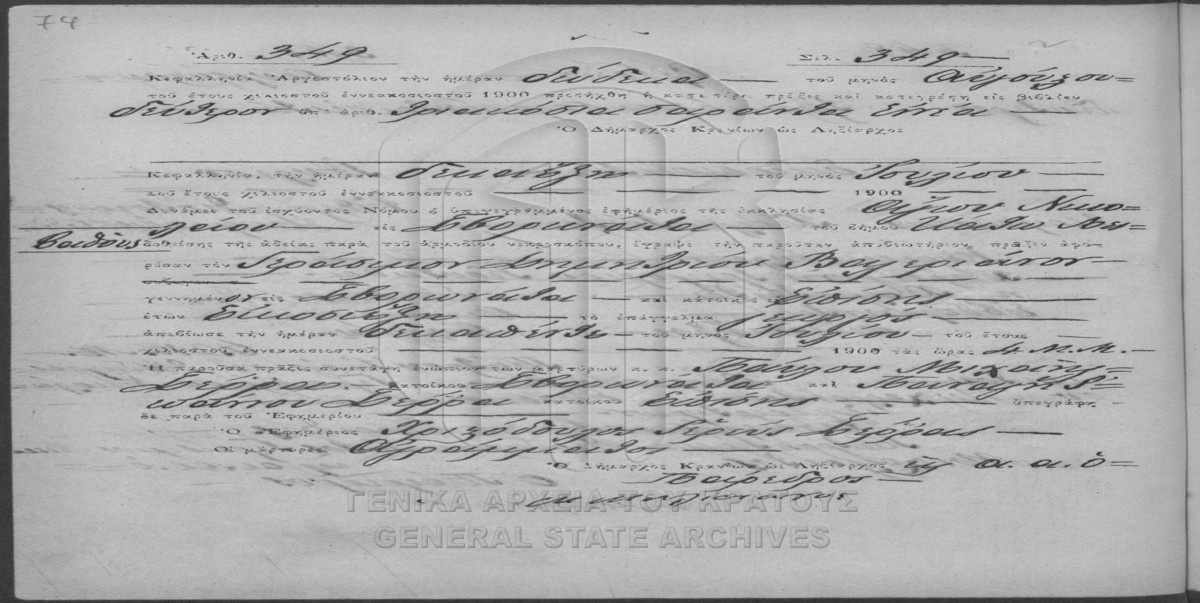 74
Ἀριθ. 349 Σελ. 349
Κεφαλληνία Ἀργοστόλιον τὴν ἡμέραν δώδεκα τοῦ μηνὸς Αὐγούστου=
τοῦ ἔτους χιλιοστοῦ ἐννεακοσιοστοῦ 1900 προσήχθη ἡ κατωτέρω πρᾶξις καὶ κατεχωρίσθη εἰς βιβλίον
δεύτερον ὑπ' ἀριθ. τριακόσια σαράντα ἐννέα
Ὁ Δήμαρχος Κρανίων ὡς Ληξίαρχος
Κεφαλληνία, τὴν ἡμέραν δεκαέξη τοῦ μηνὸς Ἰουλίου
τοῦ ἔτους χιλιοστοῦ ἐννεακοσιοστοῦ 1900
Δυνάμει τοῦ ἰσχύοντος Νόμου ὁ ὑπογεγραμμένος ἐφημέριος τῆς ἐκκλησίας Ἁγίου Νικο=
λάου εἰς Σβορωνάτα τοῦ δήμου
δοθείσης τῆς ἀδείας παρὰ τοῦ ἁρμοδίου νεκροσκόπου, ἔγραψε τὴν παροῦσαν ἀποβιωτήριον πρᾶξιν ἀφο-
ρῶσαν τὸν Γεράσιμον Δημητρίου Βαγεριάνον
γεννημένον εἰς Σβορωνάτα καὶ κάτοικος ἐπίσης
ἐτῶν τὸ ἐπάγγελμα γεωργοῦ
ἀπεβίωσε τὴν ἡμέραν δεκαπέντε τοῦ μηνὸς Ἰουλίου τοῦ ἔτους
χιλιοστοῦ ἐννεακοσιοστοῦ 1900 τὰς ὥρας 4 Μ.Μ.
Ἡ παροῦσα πρᾶξις συνετάγη ἐνώπιον τῶν μαρτύρων κ. κ. Παύλου Μιχαὴλ
Σέρρα κατοίκου Σβορωνάτα καὶ Παναγῆ
Σέρρα κατοίκου ἐπίσης ὑπεγράφη
δὲ παρὰ τοῦ Ἐφημερίου
Ὁ Ἐφημέριος Χριστόδουλος Ἱερεὺς Σέρρας
Οἱ μάρτυρες Ἀγράμματοι
Ὁ Δήμαρχος Κρανίων ὡς Ληξίαρχος α. α. ὁ=
Πάρεδρος
ΓΕΝΙΚΑ ΑΡΧΕΙΑ ΤΟΥ ΚΡΑΤΟΥΣ
GENERAL STATE ARCHIVES